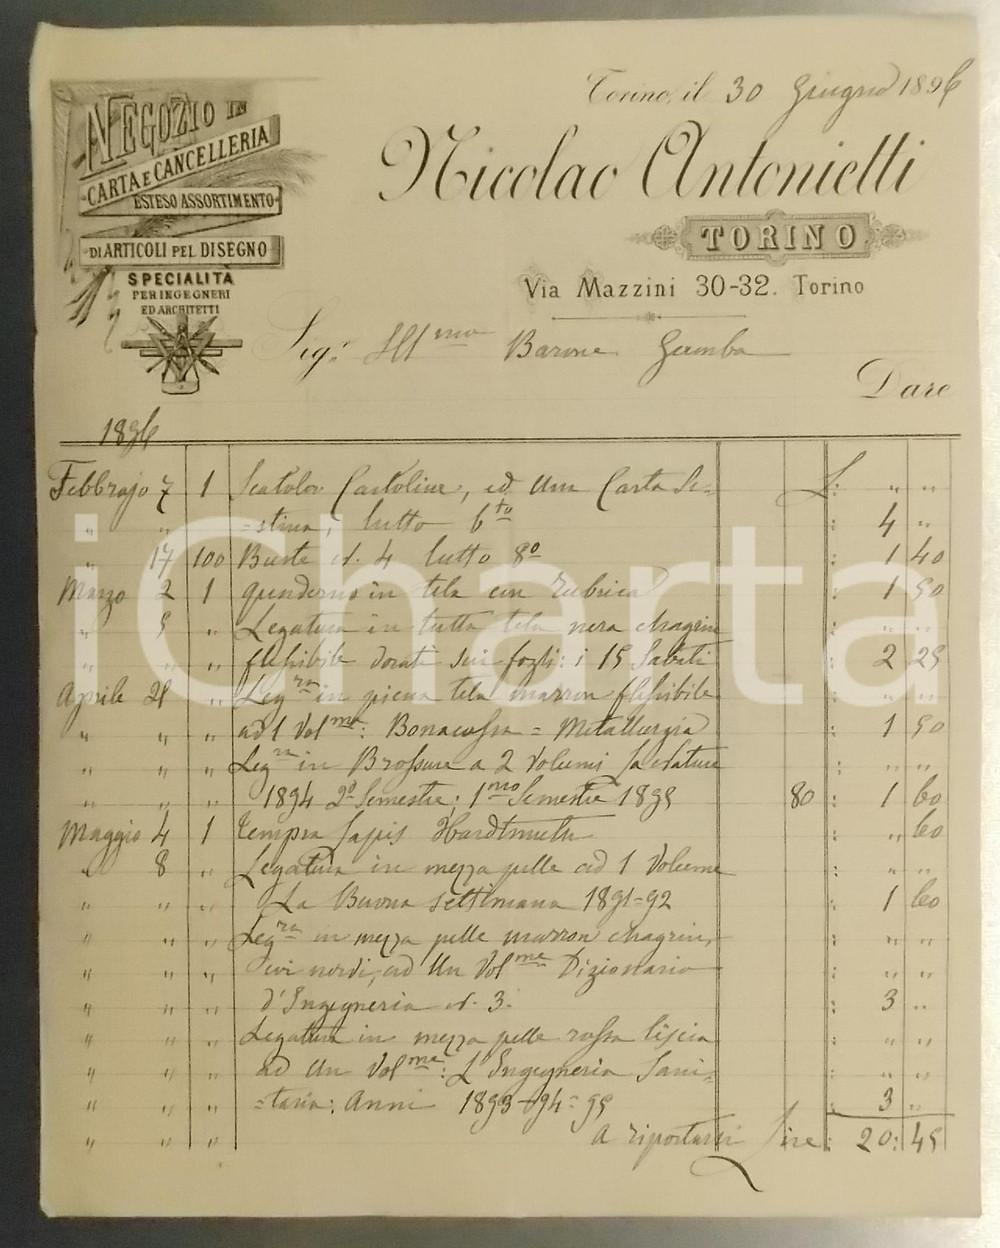 Torino, il 30 Giugno 1896
NEGOZIO IN
CARTA E CANCELLERIA
ESTESO ASSORTIMENTO
DI ARTICOLI PEL DISEGNO
SPECIALITÀ
PER INGEGNERI
ED ARCHITETTI
Nicolao Antonietti
TORINO
Via Mazzini 30-32. Torino
Sig: Ill mo Barone Gamba
Dare
1896
Febbrajo 7 1 Scatola Cartoline, ed Una Carta Se= L: " "
" " =stina, tutto 6to : 4 "
" 17 100 Buste d. 4 tutto 8º : 1 40
Marzo 2 1 quaderno in tela con Rubrica : 1 50
" 5 " Legatura in tutta tela nera chagrin : " "
" " " flessibile dorati sui fogli: i 15 Sabati : 2 25
Aprile 21 " Legra in piena tela marron flessibile : " "
" " " ad 1 Volme: Bonacossa = Metallurgia : 1 50
" " " Legra in Brossura a 2 Volumi : " "
" " " 1894 2º Semestre; 1mo Semestre 1895 80 : 1 60
Maggio 4 1 tempra lapis Hardtmuth : " 60
" 8 " Legatura in mezza pelle ad 1 Volume : " "
" " " La Buona settimana 1891=92 : 1 60
" " " Legra in mezza pelle marron chagrin, : " "
" " " ad Un Volme Dizionario : " "
" " " d'Ingegneria d. 3. : 3 "
" " " Legatura in mezza pelle rossa liscia : " "
" " " ad Un Volme: L'Ingegneria Sani= : " "
" " " =taria: Anni 1893-94=95 : 3 "
" " " A riportarsi Lire: 20: 45
iCharta